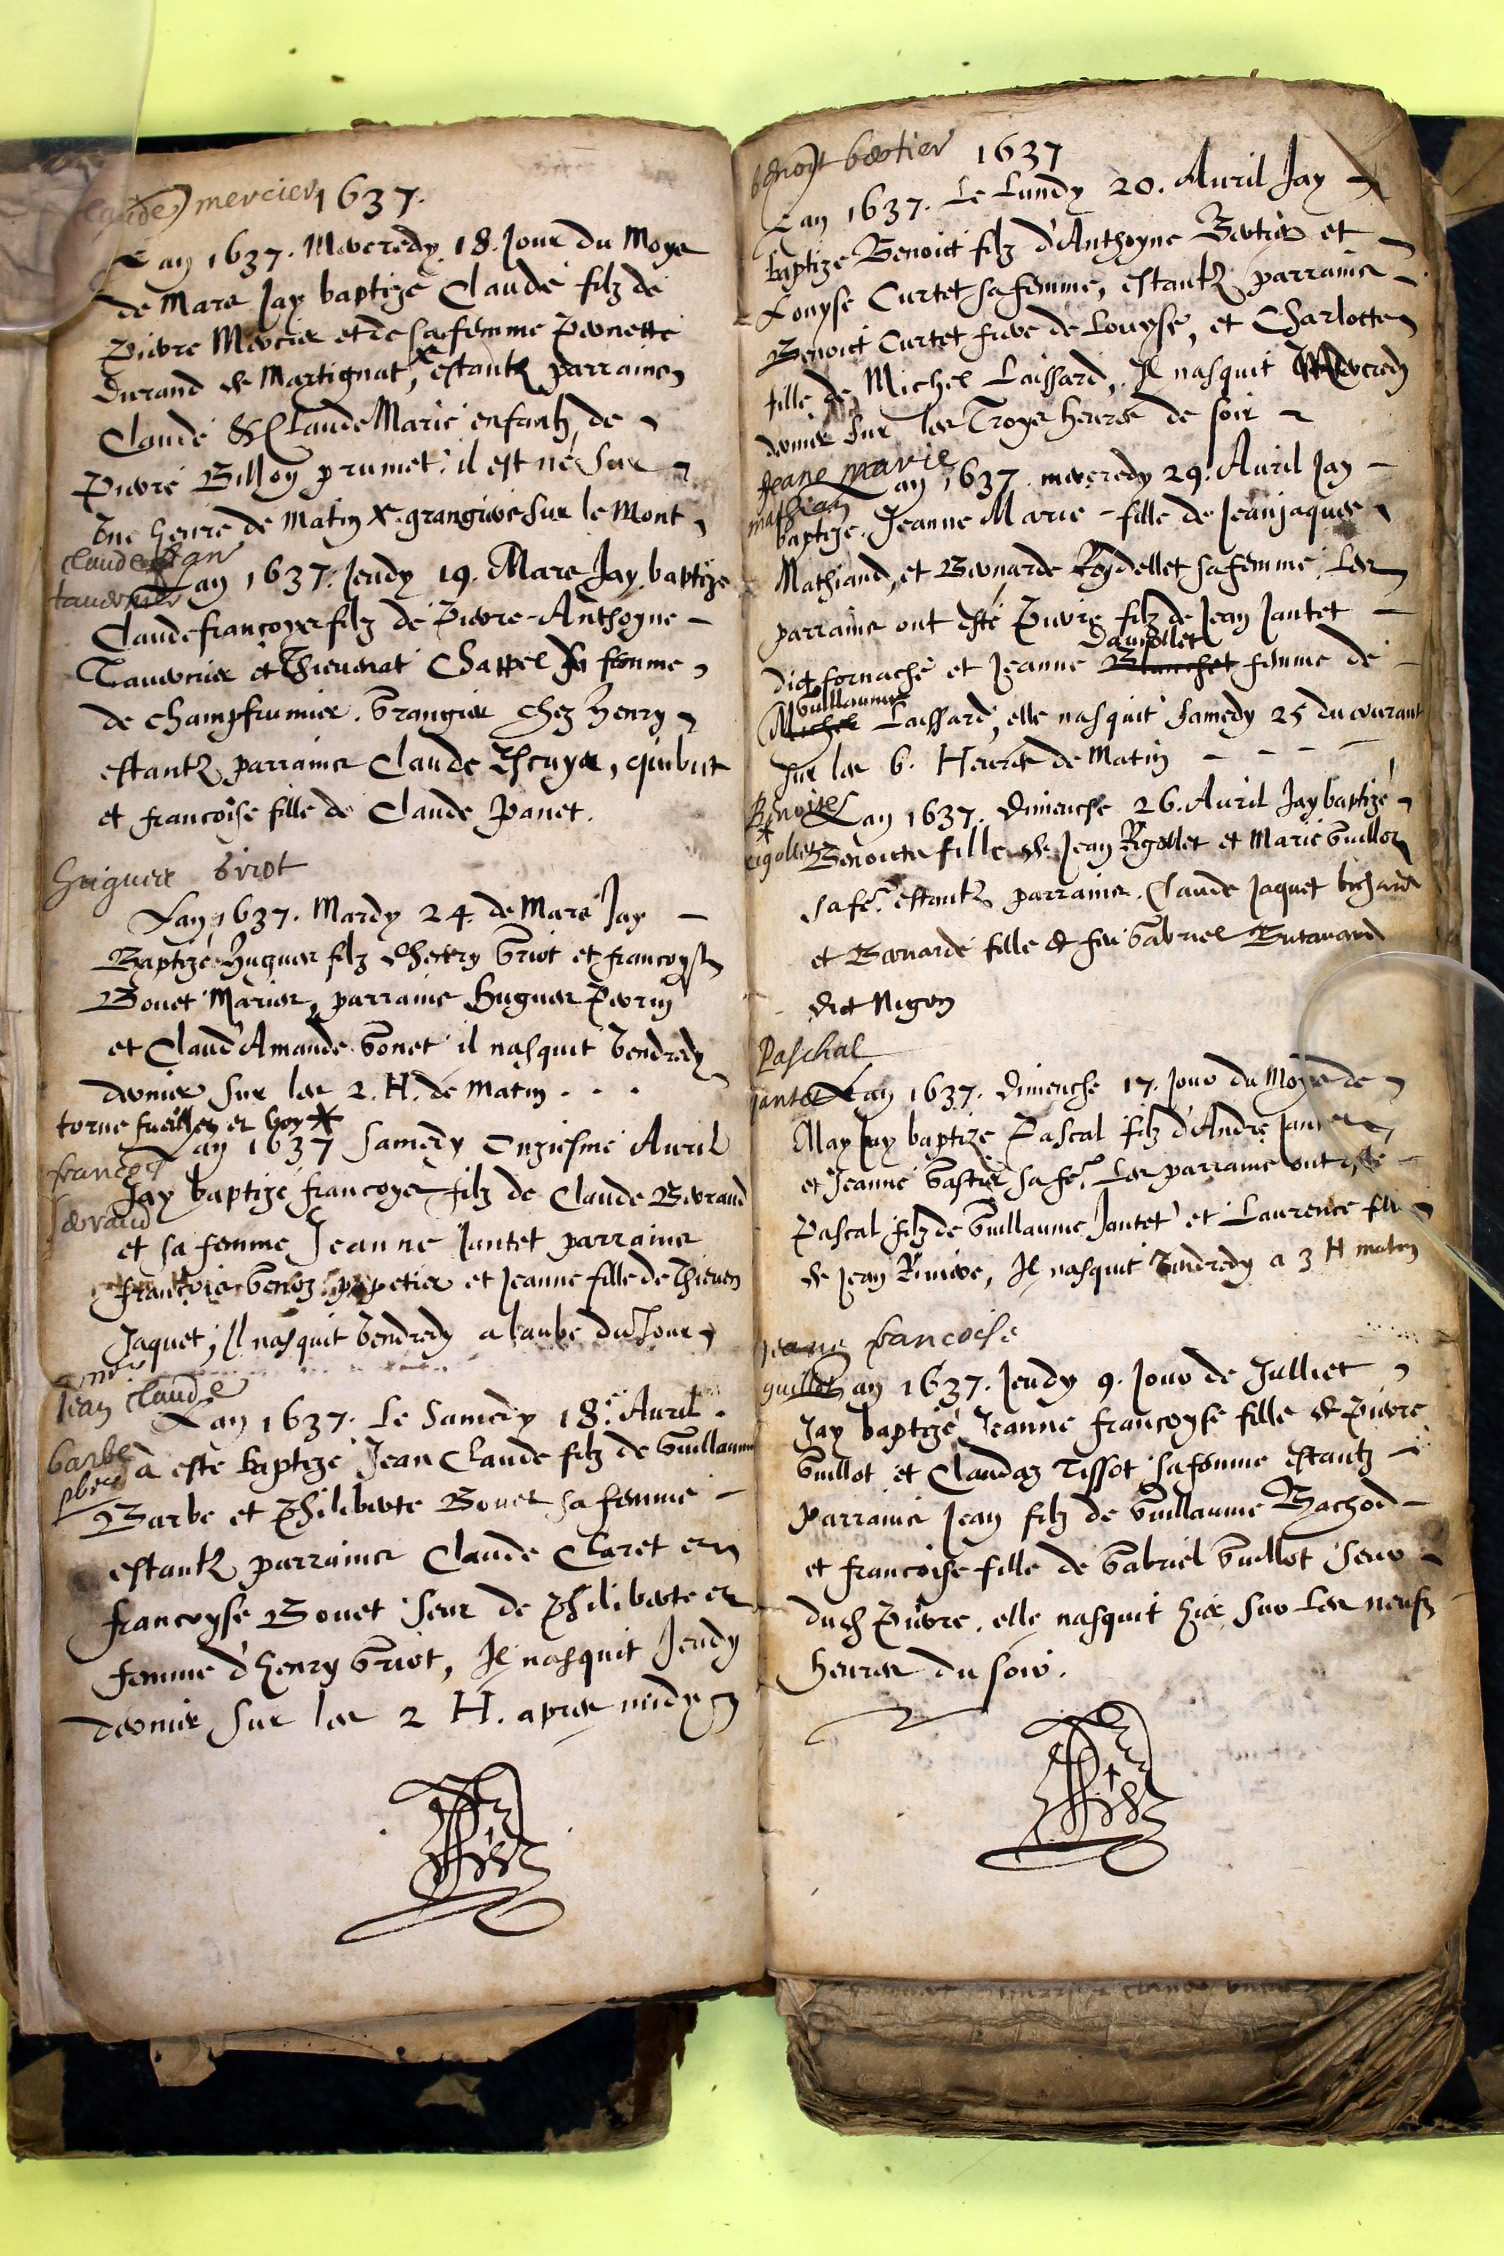 Claude mercier 1637.
Lan 1637. Mecredy. 18. Jour du Moys
de Mars Jay baptizé Claude filz de
Pierre Mercier et de sa femme Pernette
Durand de Martignat, x estantz parrains
Claude & Claude Marie enfantz de
Pierre Billon prumet. il est né sur
Une heure de Matin x. grangiers sur le Mont
Claude fran
tavernier
Lan 1637. Jeudy 19. Mars Jay baptizé
Claude françoys filz de Pierre-Anthoyne
Tavernier et Thievenat Chappel sa femme
de Champfrumier. Grangier chez Henry
estantz parrains Claude Escuyer, quibut
et francoise fille de Claude Panet.
Hugues Griot
Lan 1637. Mardy 24. de Mars Jay
Baptizé Hugues filz dhenry Griot et francoyse
Bouet Mariés, parrains Hugues Perrin
et Claud'Amande Gonet il nasquit Vendredy
dernier sur les 2. H. de Matin . . .
torne fueilles er hoy x
francois
Lan 1637 Samedy Onziesme Avril
Jay baptizé françoys filz de Claude Beraud
et sa femme Jeanne Jantet parrains
françois papetier et Jeanne fille de Thieven
Jaquet, Il nasquit Vendredy a laube du Jour
Jean Claude
barbe
pbre
Lan 1637. Le Samedy 18.e Avril.
à esté baptizé Jean Claude filz de Guillaume
Barbe et Philiberte Bouet sa femme
estantz parrains Claude Claret et
francoyse Bouet seur de Philiberte et
femme d'henry Griot, Il nasquit Jeudy
dernier sur les 2 H. apres midy
benoit bertier 1637
Lan 1637. Le Lundy 20. Avril Jay
baptizé Benoict filz d'Anthoyne Bertier et
Louyse Curtet sa femme, estantz parrains
Benoict Curtet frere de Louyse, et Charlotte
fille de Michel Laissard, Il nasquit Mecredy
dernier sur les Troys heures de soir
Jeane marie
mathian
Lan 1637. mecredy 29. Avril Jay
baptizé Jeanne Marie - fille de Jeanjaques
Mathiand, et Bernarde Reydellet sa femme. Les
parrains ont esté Pierre filz de Jean Jantet
dict fornache et Jeanne Blanchet femme de
Guillaume
Michel Laissard, elle nasquit Samedy 25 du courant
sur les 6. Heures de Matin
Benoite
rigollet
Lan 1637. Dimenche 26. Avril Jay baptizé
Benoicte fille de Jean Rigollet et Marie Guillon
sa fe. estantz parrains. Claude Jaquet bichard
et Bernarde fille de feu Gabriel
dict Nigon
Paschal
jantet
Lan 1637. Dimenche 17. Jour du Moys de
May Jay baptizé Pascal filz d'André Jantet
et Jeanne Gastier sa fe. Les parrains ont esté
Pascal filz de Guillaume Jantet et Laurence fille
de Jean Riviere, Il nasquit Vendredy a 3 H matin
jeane francoise
guillot
Lan 1637. Jeudy 9. Jour de Julliet
Jay baptizé Jeanne francoyse fille de Pierre
Guillot et Claudaz Tissot sa femme estantz
Parrains Jean filz de Guillaume Bachod
et francoise fille de Gabriel Guillot seur
dudt Pierre. elle nasquit hier sur les neufz
heures du soir.